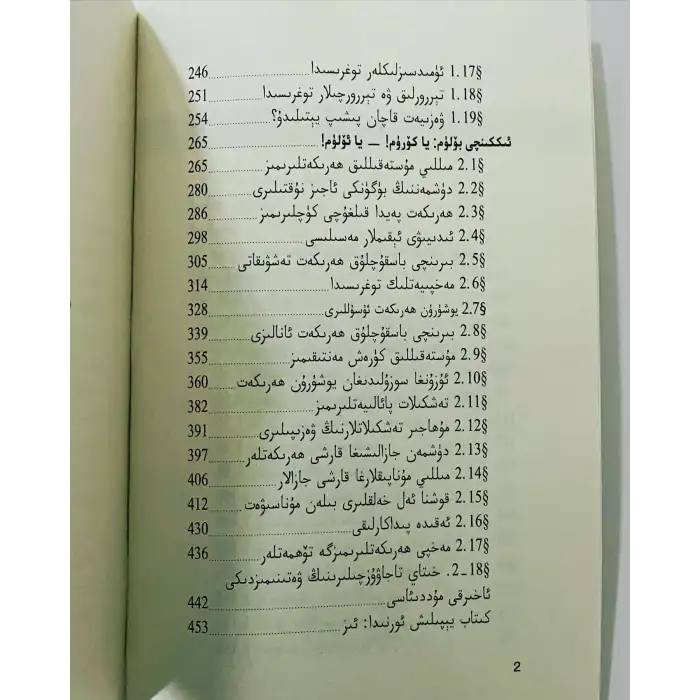 §1.17 ئۈمىدسىزلىكلەر توغرىسىدا 246
§1.18 تېررورلىق ۋە تېررورچىلار توغرىسىدا 251
§1.19 ۋەزىيەت قاچان پىشىپ يېتىلىدۇ؟ 254
ئىككىنچى بۆلۈم: يا كۆرۈم! — يا ئۆلۈم! 265
§2.1 مىللىي مۇستەقىللىق ھەرىكەتلىرىمىز 265
§2.2 دۈشمەننىڭ بۈگۈنكى ئاجىز نۇقتىلىرى 280
§2.3 ھەرىكەت پەيدا قىلغۇچى كۈچلىرىمىز 286
§2.4 ئىدىيىۋى ئېقىملار مەسىلىسى 298
§2.5 بىرىنچى باسقۇچلۇق ھەرىكەت تەشۋىقاتى 305
§2.6 مەخپىيەتلىك توغرىسىدا 314
§2.7 يوشۇرۇن ھەرىكەت ئۇسۇللىرى 328
§2.8 بىرىنچى باسقۇچلۇق ھەرىكەت ئانالىزى 339
§2.9 مۇستەقىللىق كۈرەش مەنتىقىمىز 355
§2.10 ئۇزۇنغا سوزۇلىدىغان يوشۇرۇن ھەرىكەت 360
§2.11 تەشكىلات پائالىيەتلىرىمىز 382
§2.12 مۇھاجىر تەشكىلاتلارنىڭ ۋەزىپىلىرى 391
§2.13 دۈشمەن جازالىشىغا قارشى ھەرىكەتلەر 397
§2.14 مىللىي مۇناپىقلارغا قارشى جازالار 406
§2.15 قوشنا ئەل خەلقلىرى بىلەن مۇناسىۋەت 412
§2.16 ئەقىدە پىداكارلىقى 430
§2.17 مەخپى ھەرىكەتلىرىمىزگە تۆھمەتلەر 436
§2ـ18. خىتاي تاجاۋۇزچىلىرىنىڭ ۋەتىنىمىزدىكى
ئاخىرقى مۇددىئاسى 442
كىتاب يېپىلىش ئورنىدا: ئىز 453
2